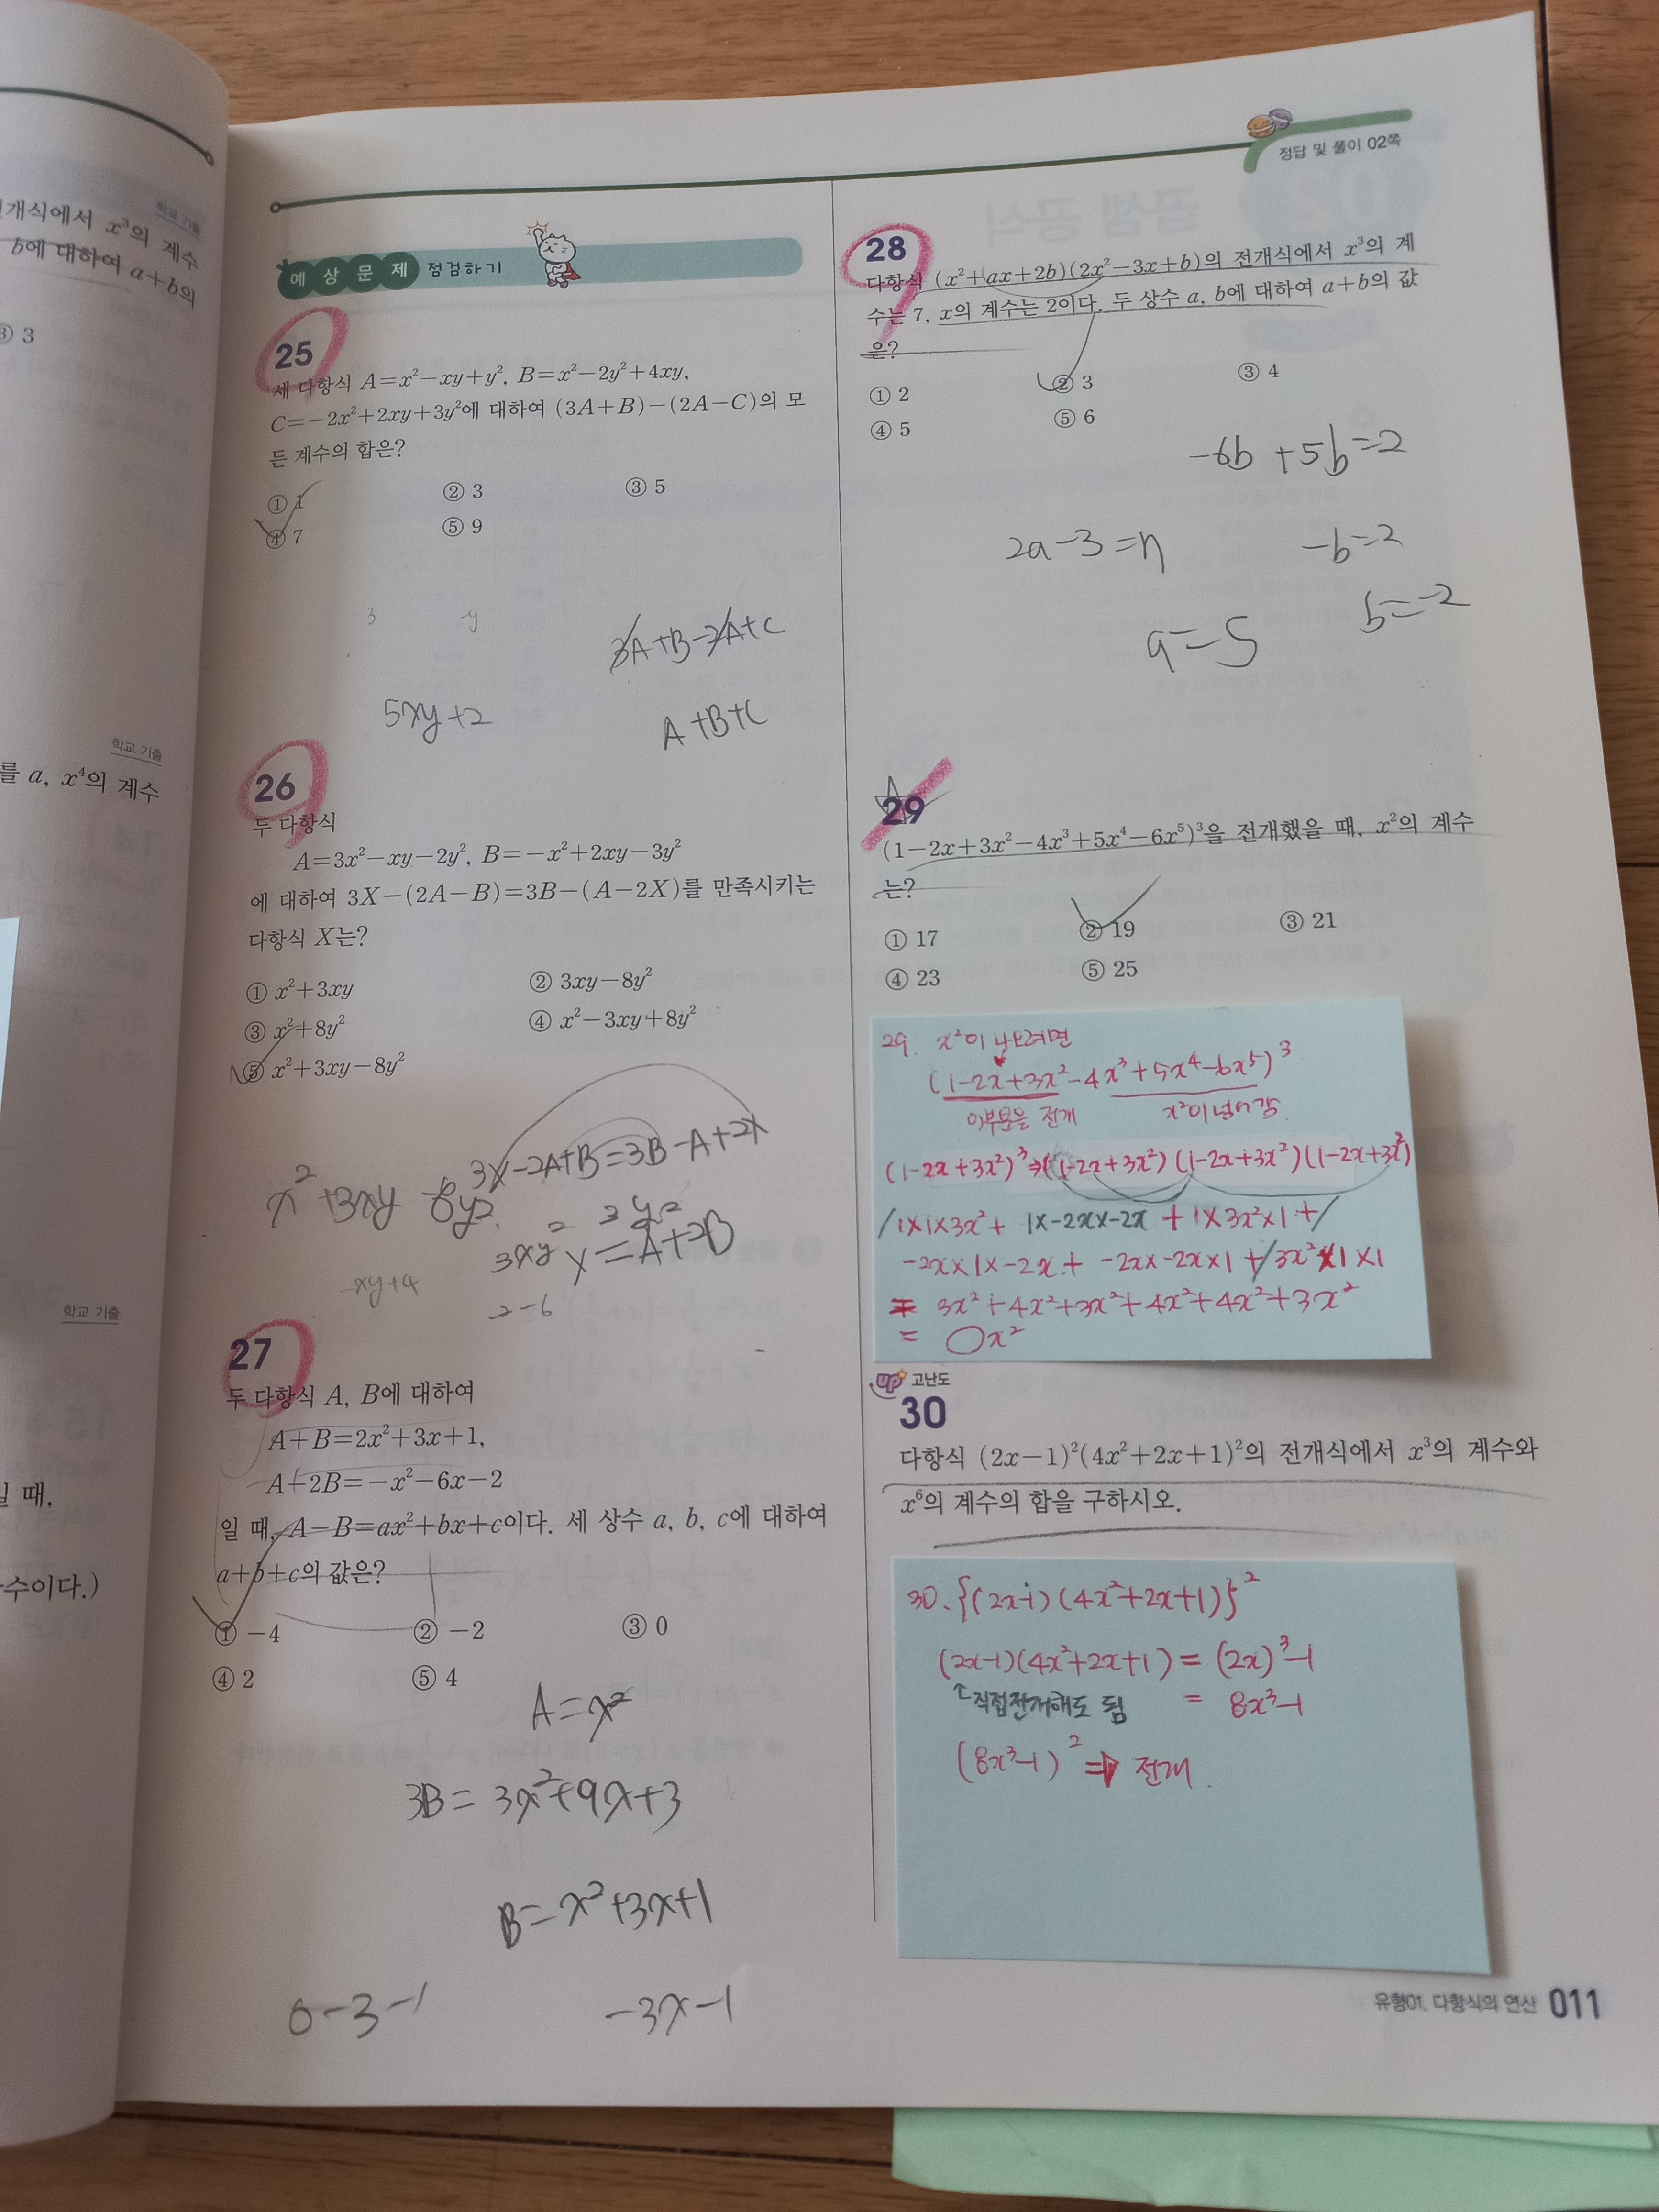 학교 기출
전개식에서 x³의 계수
b에 대하여 a+b의
③ 3
학교 기출
를 a, x⁴의 계수
학교 기출
일 때,
수이다.)
정답 및 풀이 02쪽
예상문제 점검하기
25
세 다항식 A=x²-xy+y², B=x²-2y²+4xy,
C=-2x²+2xy+3y²에 대하여 (3A+B)-(2A-C)의 모
든 계수의 합은?
① 1 ② 3 ③ 5
④ 7 ⑤ 9
3A+B-2A+C
5xy+2
A+B+C
26
두 다항식
A=3x²-xy-2y², B=-x²+2xy-3y²
에 대하여 3X-(2A-B)=3B-(A-2X)를 만족시키는
다항식 X는?
① x²+3xy ② 3xy-8y²
③ x²+8y² ④ x²-3xy+8y²
⑤ x²+3xy-8y²
3X-2A+B=3B-A+2X
x²+3xy-8y²
X=A+2B
-xy+4
-2-6
27
두 다항식 A, B에 대하여
A+B=2x²+3x+1,
A+2B=-x²-6x-2
일 때, A-B=ax²+bx+c이다. 세 상수 a, b, c에 대하여
a+b+c의 값은?
① -4 ② -2 ③ 0
④ 2 ⑤ 4
A=x²
3B=3x²+9x+3
B=x²+3x+1
0-3-1
-3x-1
28
다항식 (x²+ax+2b)(2x²-3x+b)의 전개식에서 x³의 계
수는 7, x의 계수는 2이다. 두 상수 a, b에 대하여 a+b의 값
은?
① 2 ② 3 ③ 4
④ 5 ⑤ 6
-6b+5b=2
2a-3=7
-b=2
b=-2
a=5
29
(1-2x+3x²-4x³+5x⁴-6x⁵)³을 전개했을 때, x²의 계수
는?
① 17 ② 19 ③ 21
④ 23 ⑤ 25
29. x²이 나오려면
(1-2x+3x²-4x³+5x⁴-6x⁵)³
이부분을 전개 x²이 넘어감
(1-2x+3x²)³⇒(1-2x+3x²)(1-2x+3x²)(1-2x+3x²)
1×1×3x²+ 1×-2x×-2x + 1×3x²×1 +
-2x×1×-2x + -2x×-2x×1 + 3x²×1×1
= 3x²+4x²+3x²+4x²+4x²+3x²
= ○x²
up 고난도
30
다항식 (2x-1)²(4x²+2x+1)²의 전개식에서 x³의 계수와
x⁶의 계수의 합을 구하시오.
30. {(2x-1)(4x²+2x+1)}²
(2x-1)(4x²+2x+1) = (2x)³-1
↑직접전개해도 됨 = 8x³-1
(8x³-1)² ⇒ 전개.
유형01. 다항식의 연산 011